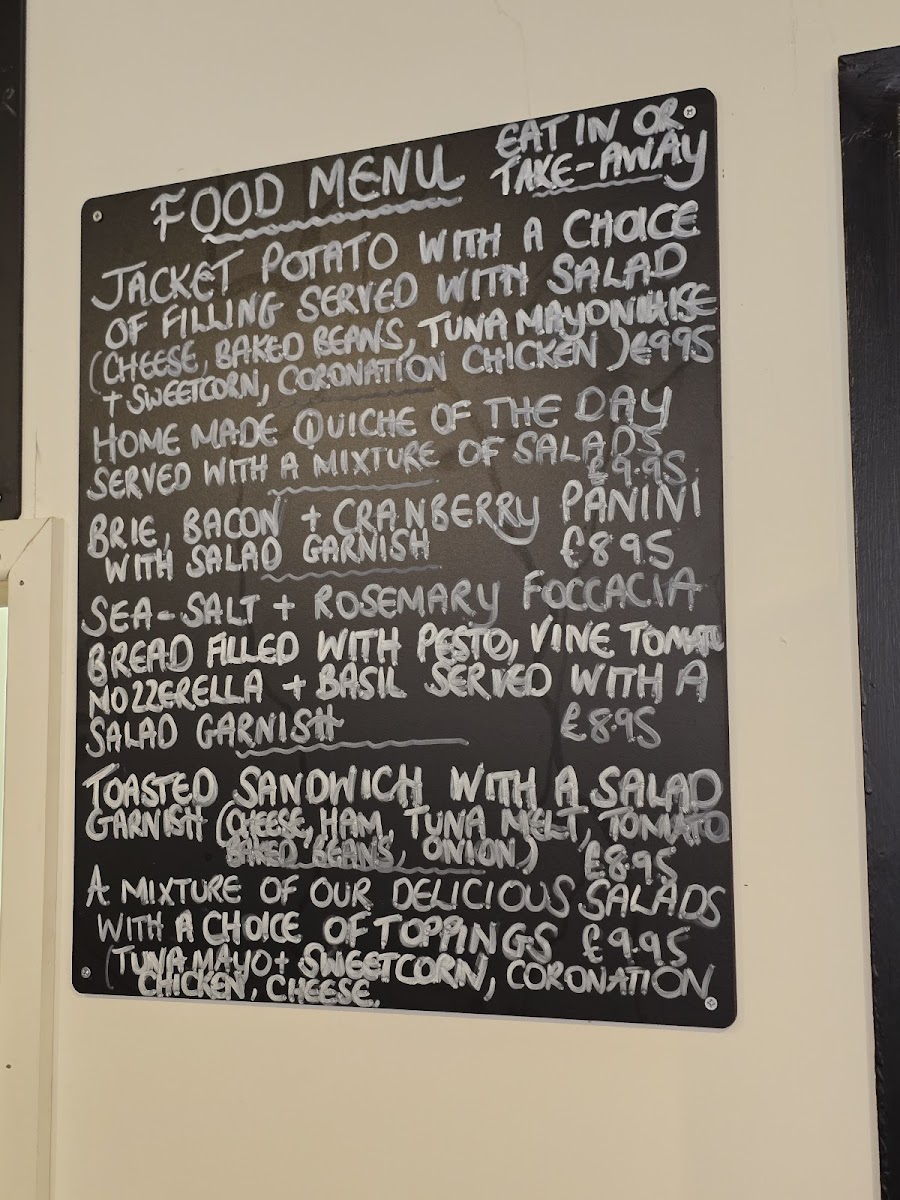 FOOD MENU
EAT IN OR
TAKE-AWAY
JACKET POTATO WITH A CHOICE
OF FILLING SERVED WITH SALAD
(CHEESE, BAKED BEANS, TUNA MAYONNAISE
+ SWEETCORN, CORONATION CHICKEN) £9.95
HOME MADE QUICHE OF THE DAY
SERVED WITH A MIXTURE OF SALADS
£9.95
BRIE, BACON + CRANBERRY PANINI
WITH SALAD GARNISH £8.95
SEA-SALT + ROSEMARY FOCCACIA
BREAD FILLED WITH PESTO, VINE TOMATO
MOZZERELLA + BASIL SERVED WITH A
SALAD GARNISH £8.95
TOASTED SANDWICH WITH A SALAD
GARNISH (CHEESE, HAM, TUNA MELT, TOMATO
BAKED BEANS, ONION) £8.95
A MIXTURE OF OUR DELICIOUS SALADS
WITH A CHOICE OF TOPPINGS £9.95
(TUNA MAYO + SWEETCORN, CORONATION
CHICKEN, CHEESE.